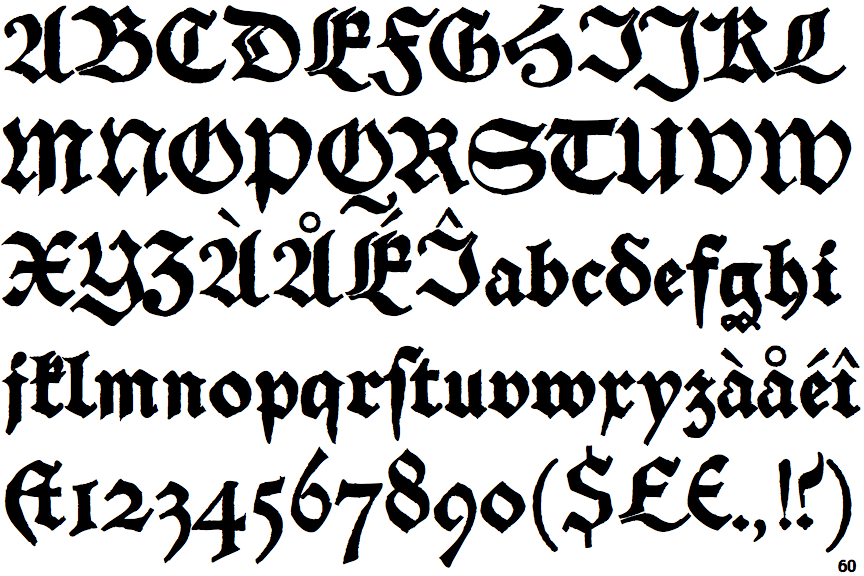 ABCDEFGHIJKL
MNOPQRSTUVW
XYZÀÅÉÎabcdefghi
jklmnopqrſtuvwxyzàåéî
&1234567890($££.,!?)
60